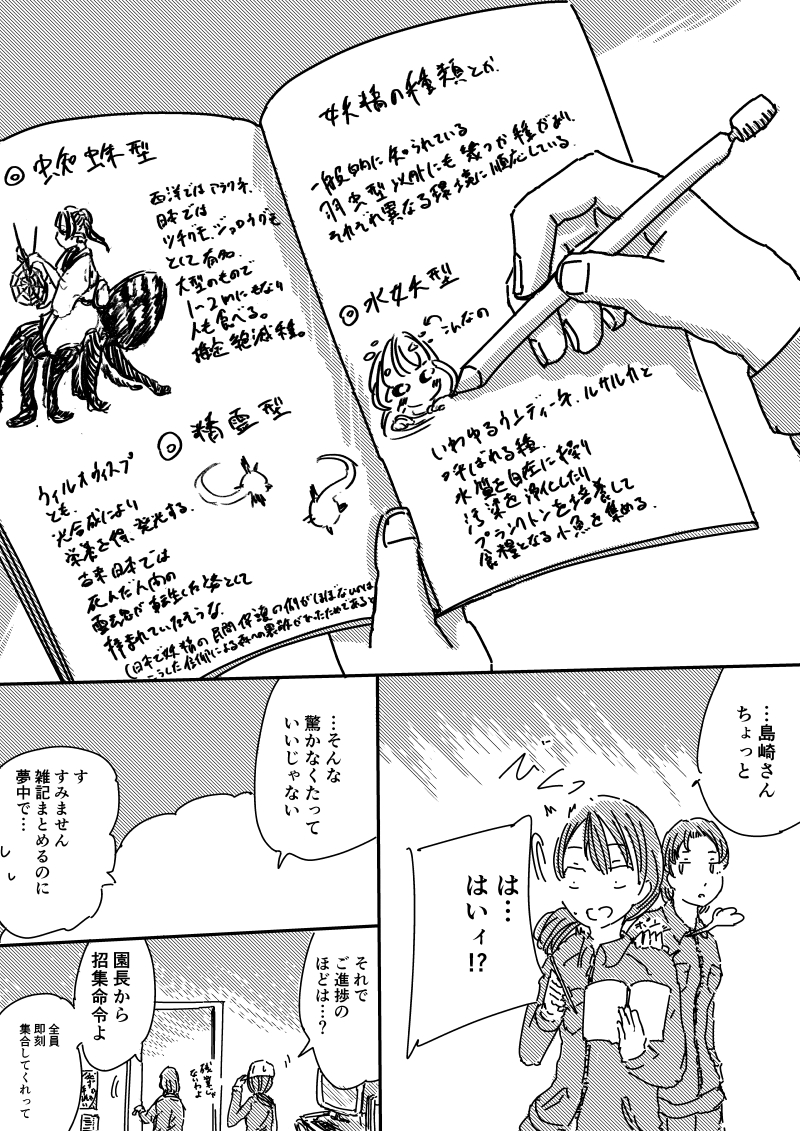 妖精の種類とか
一般的に知られている
羽虫型以外にも幾つか種があり、
それぞれ異なる環境に順応している。
◎水妖型
こんなの
いわゆるウンディーネ、ルサルカと
呼ばれる種。
水質を自在に操り
汚染を浄化したり
プランクトンを培養して
食糧となる小魚を集める。
◎蜘蛛型
西洋ではアラクネ、
日本では
ツチグモ、ジョロウグモ
として有名。
大型のもので
1〜2mにもなり
人も食べる。
推定絶滅種。
◎精霊型
ウィルオウィスプ
とも。
光合成により
栄養を得、発光する。
古来日本では
死んだ人間の
霊魂が転生した姿として
拝まれていたそうな。
(日本で妖精の民間保護の例がほぼないのは
…島崎さん
ちょっと
は…
はいィ!?
ポン
…そんな
驚かなくたって
いいじゃない
す
すみません
雑記まとめるのに
夢中で…
それで
ご進捗の
ほどは…?
残業じゃ
ないわよ
園長から
招集命令よ
全員
即刻
集合してくれって